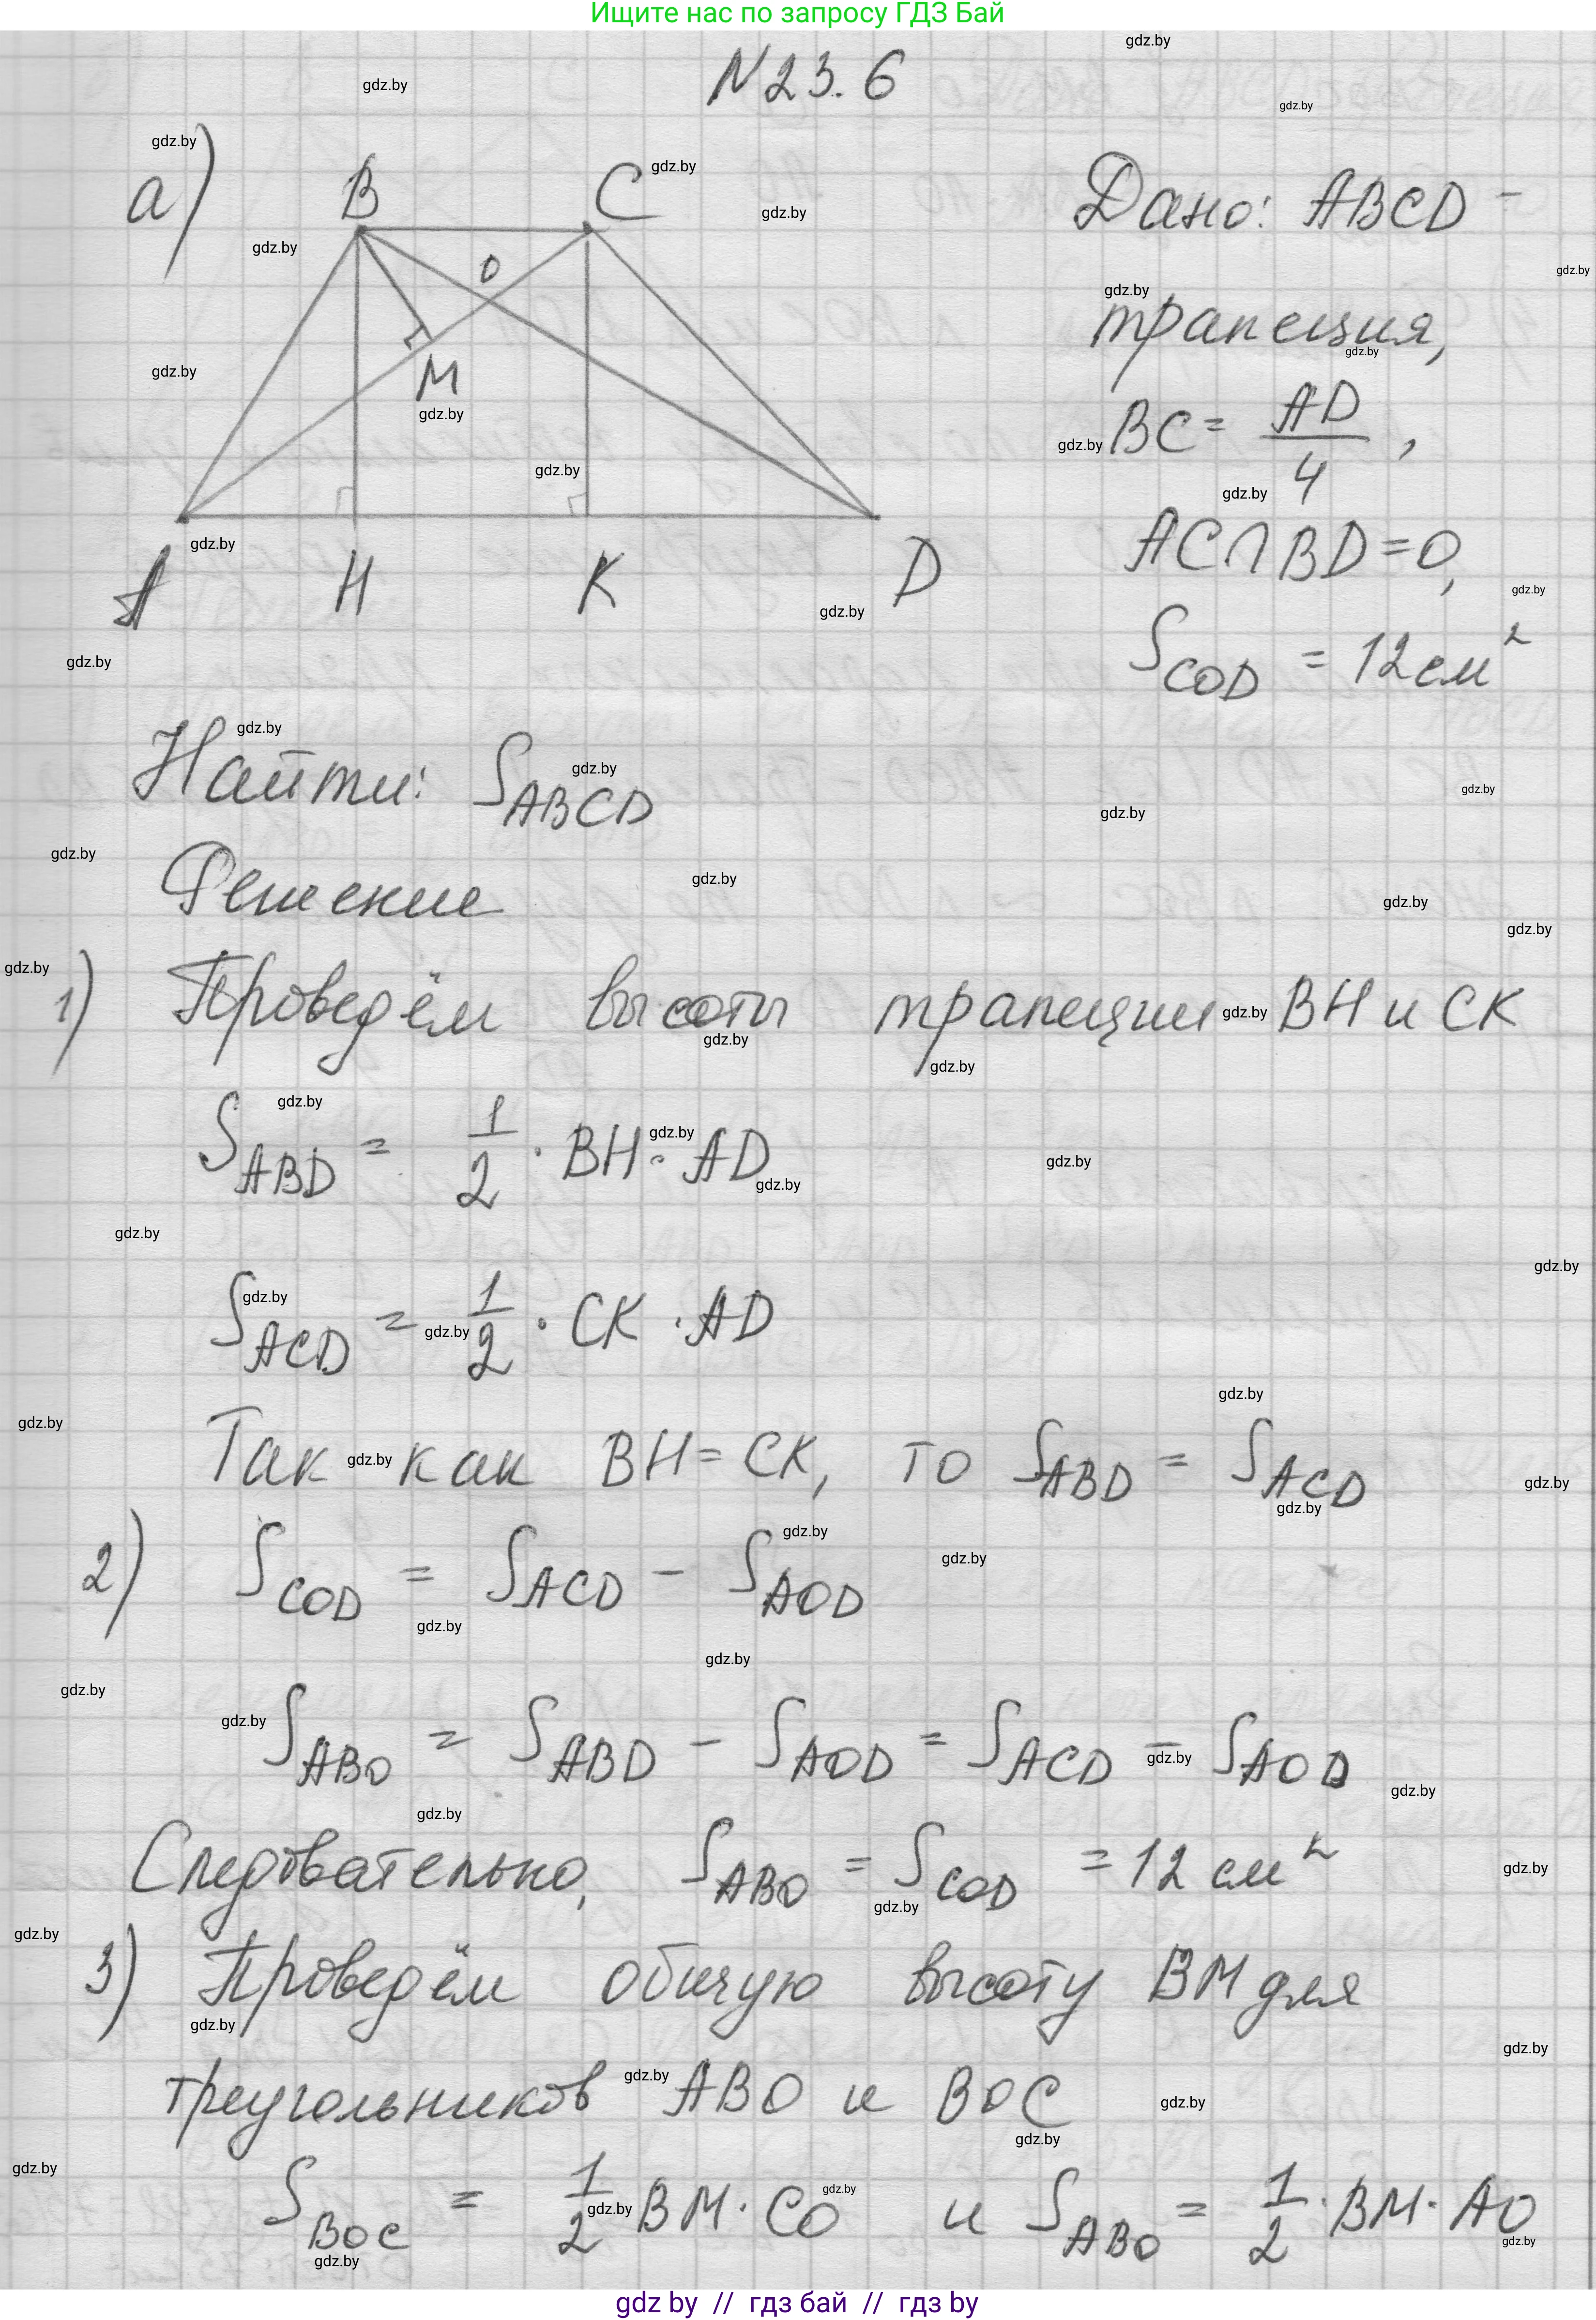 Ищите нас по запросу ГДЗ Бай
N 23.6
а)
B
C
O
M
A
H
K
D
Дано: ABCD -
трапеция,
BC = AD/4,
AC∩BD=O,
S_COD = 12 см²
Найти: S_ABCD
Решение
1) Проведём высоты трапеции BH и CK
S_ABD = 1/2 · BH · AD
S_ACD = 1/2 · CK · AD
Так как BH = CK, то S_ABD = S_ACD
2) S_COD = S_ACD - S_AOD
S_ABO = S_ABD - S_AOD = S_ACD - S_AOD
Следовательно, S_ABO = S_COD = 12 см²
3) Проведём общую высоту BM для
треугольников ABO и BOC
S_BOC = 1/2 BM · CO и S_ABO = 1/2 · BM · AO
gdz by // гдз бай // гдз by